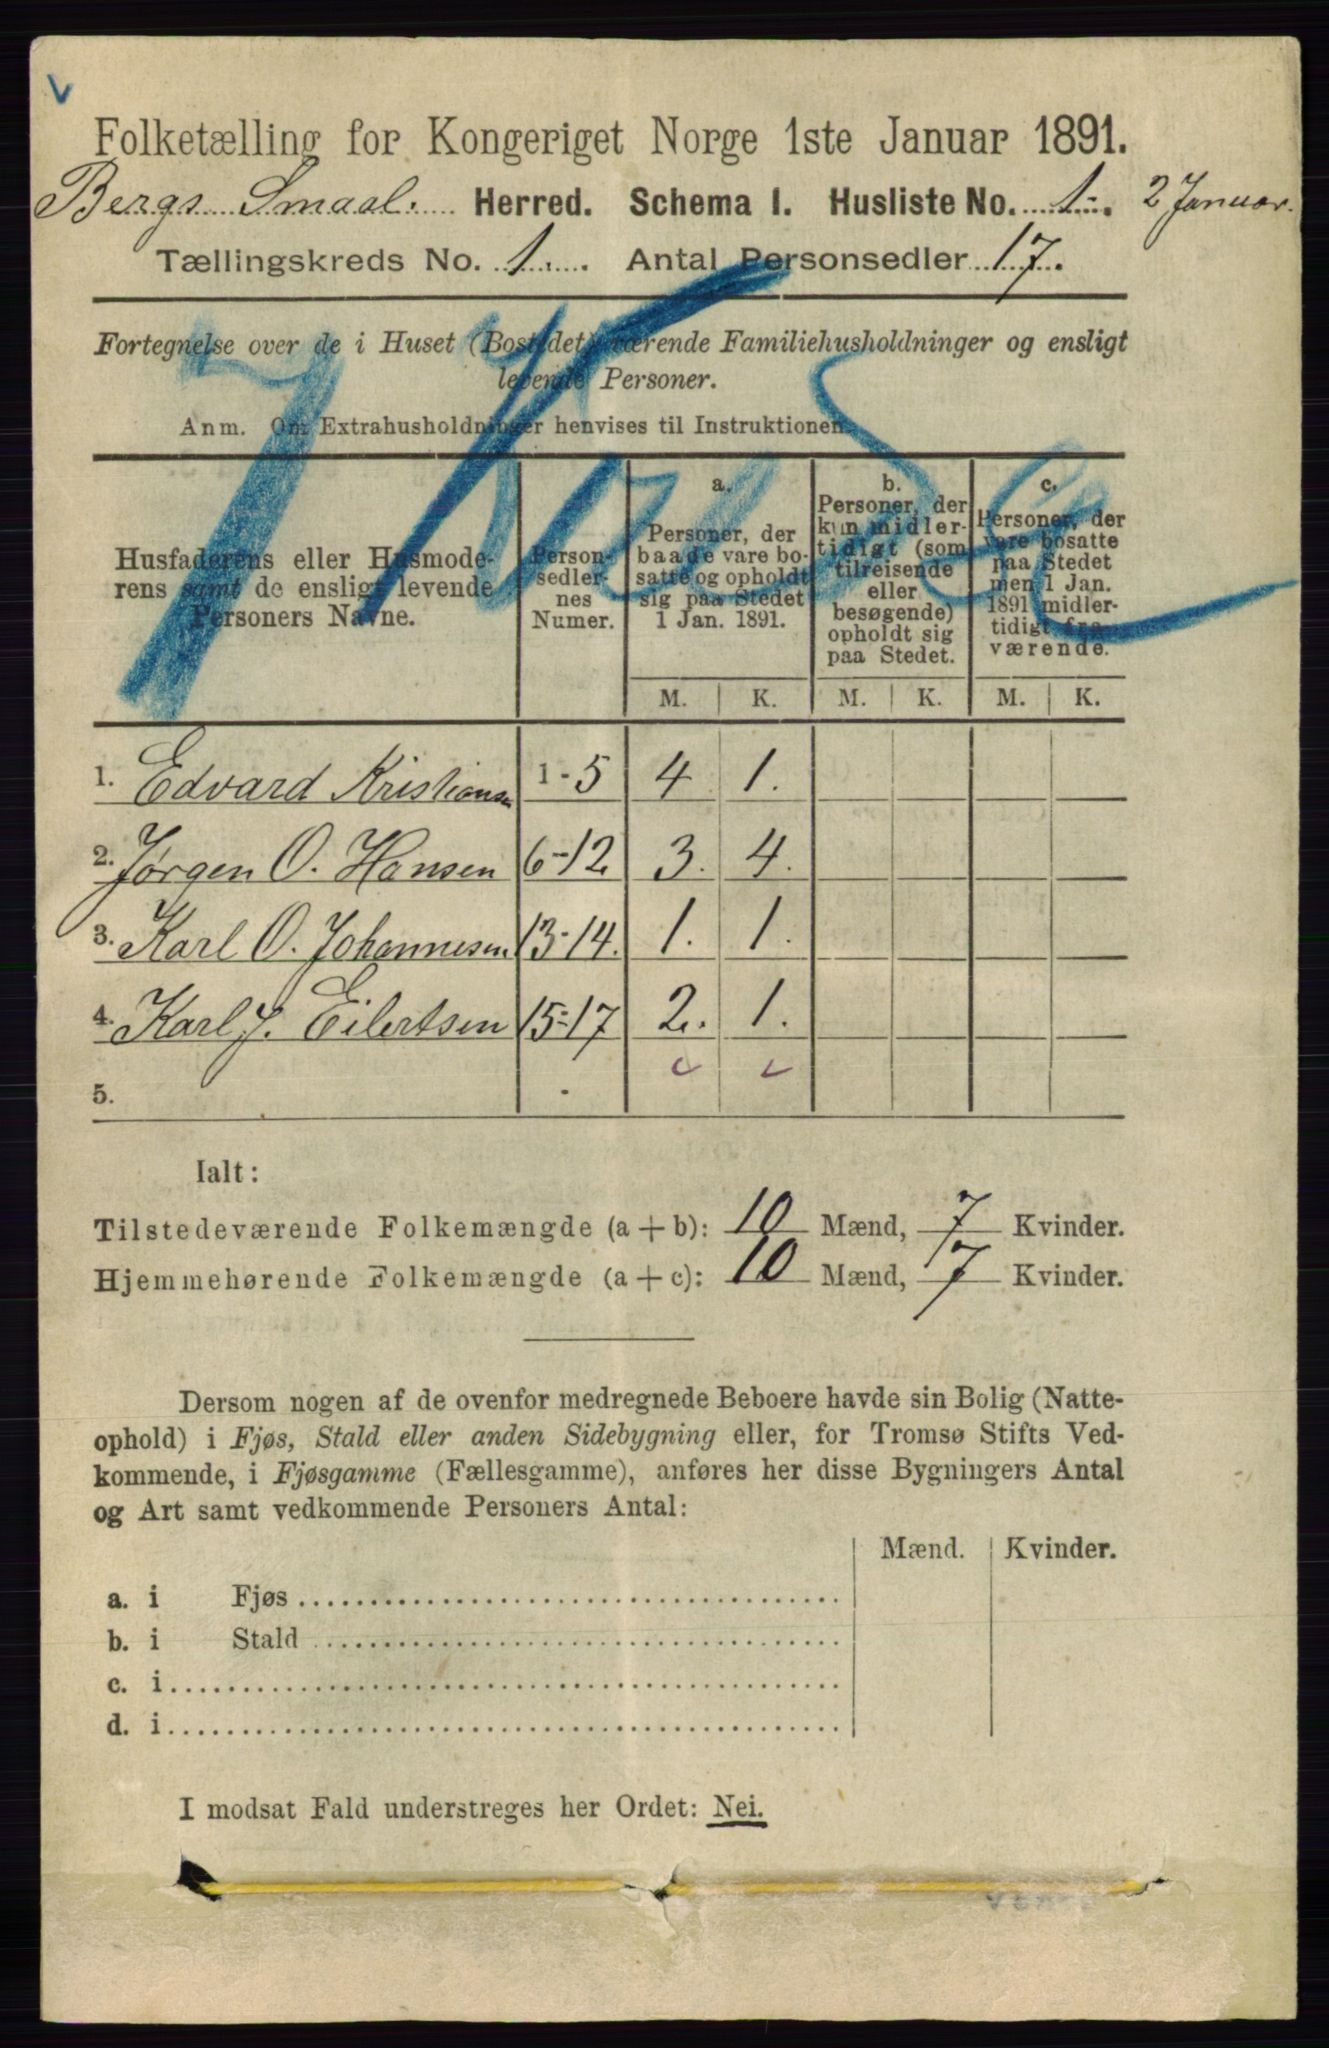 Folketælling for Kongeriget Norge 1ste Januar 1891.
Bergs Smaal. Herred. Schema I. Husliste No. 1. 2 Januar.
Tællingskreds No. 1. Antal Personsedler 17.
Fortegnelse over de i Huset (Bostedet) værende Familiehusholdninger og ensligt
levende Personer.
Anm. Om Extrahusholdninger henvises til Instruktionen.
Husfaderens eller Husmode-
rens samt de ensligt levende
Personers Navne.
Person-
sedler-
nes
Numer.
a.
Personer, der
baade vare bo-
satte og opholdt
sig paa Stedet
1 Jan. 1891.
b.
Personer, der
kun midler-
tidigt (som
tilreisende
eller
besøgende)
opholdt sig
paa Stedet.
c.
Personer, der
vare bosatte
paa Stedet
men 1 Jan.
1891 midler-
tidigt fra-
værende.
M. K. M. K. M. K.
1. Edvard Kristiansen 1-5 4 1.
2. Jørgen O. Hansen 6-12 3. 4.
3. Karl O. Johannesen 13-14. 1. 1.
4. Karl J. Eilertsen 15-17 2. 1.
5. -
Ialt:
Tilstedeværende Folkemængde (a + b): 10 Mænd, 7 Kvinder.
Hjemmehørende Folkemængde (a + c): 10 Mænd, 7 Kvinder.
Dersom nogen af de ovenfor medregnede Beboere havde sin Bolig (Natte-
ophold) i Fjøs, Stald eller anden Sidebygning eller, for Tromsø Stifts Ved-
kommende, i Fjøsgamme (Fællesgamme), anføres her disse Bygningers Antal
og Art samt vedkommende Personers Antal:
Mænd. Kvinder.
a. i Fjøs
b. i Stald
c. i
d. i
I modsat Fald understreges her Ordet: Nei.